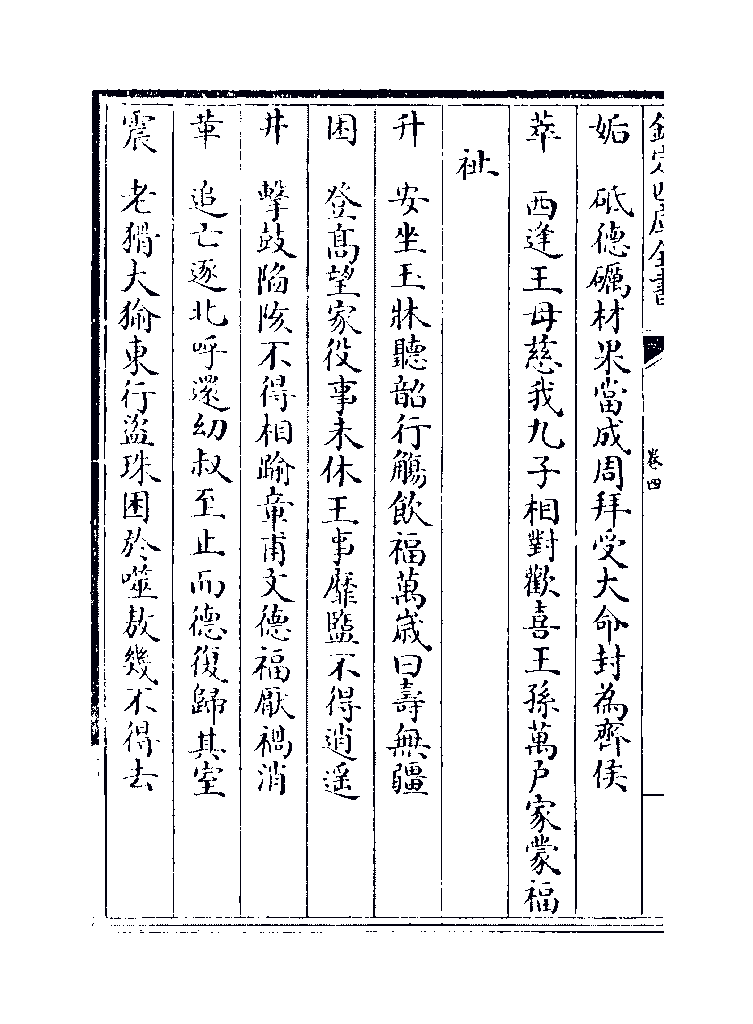 欽定四庫全書
卷四
姤 砥德礪材果當成周拜受大命封為齊侯
萃 西逢王母慈我九子相對歡喜王孫萬戶家蒙福
祉
升 安坐玉牀聽韶行觴飲福萬歲曰壽無疆
困 登高望家役事未休王事靡盬不得逍遥
井 擊鼓陷陔不得相踰章甫文德福厭禍消
革 追亡逐北呼還幼叔至止而德復歸其室
震 老猾大偷東行盜珠困於噬敖幾不得去